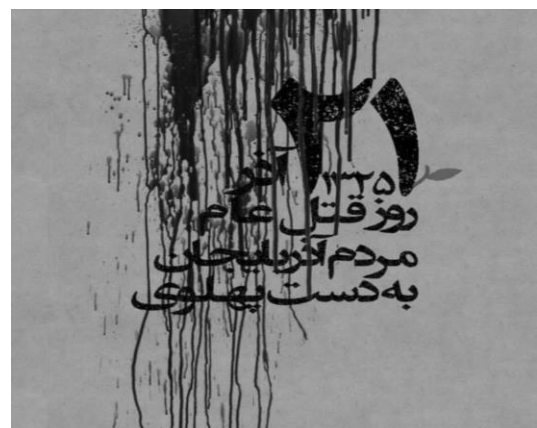 ۲۱
آذر ۱۳۲۵
روز قتل عام
مردم آذربایجان
به دست پهلوی